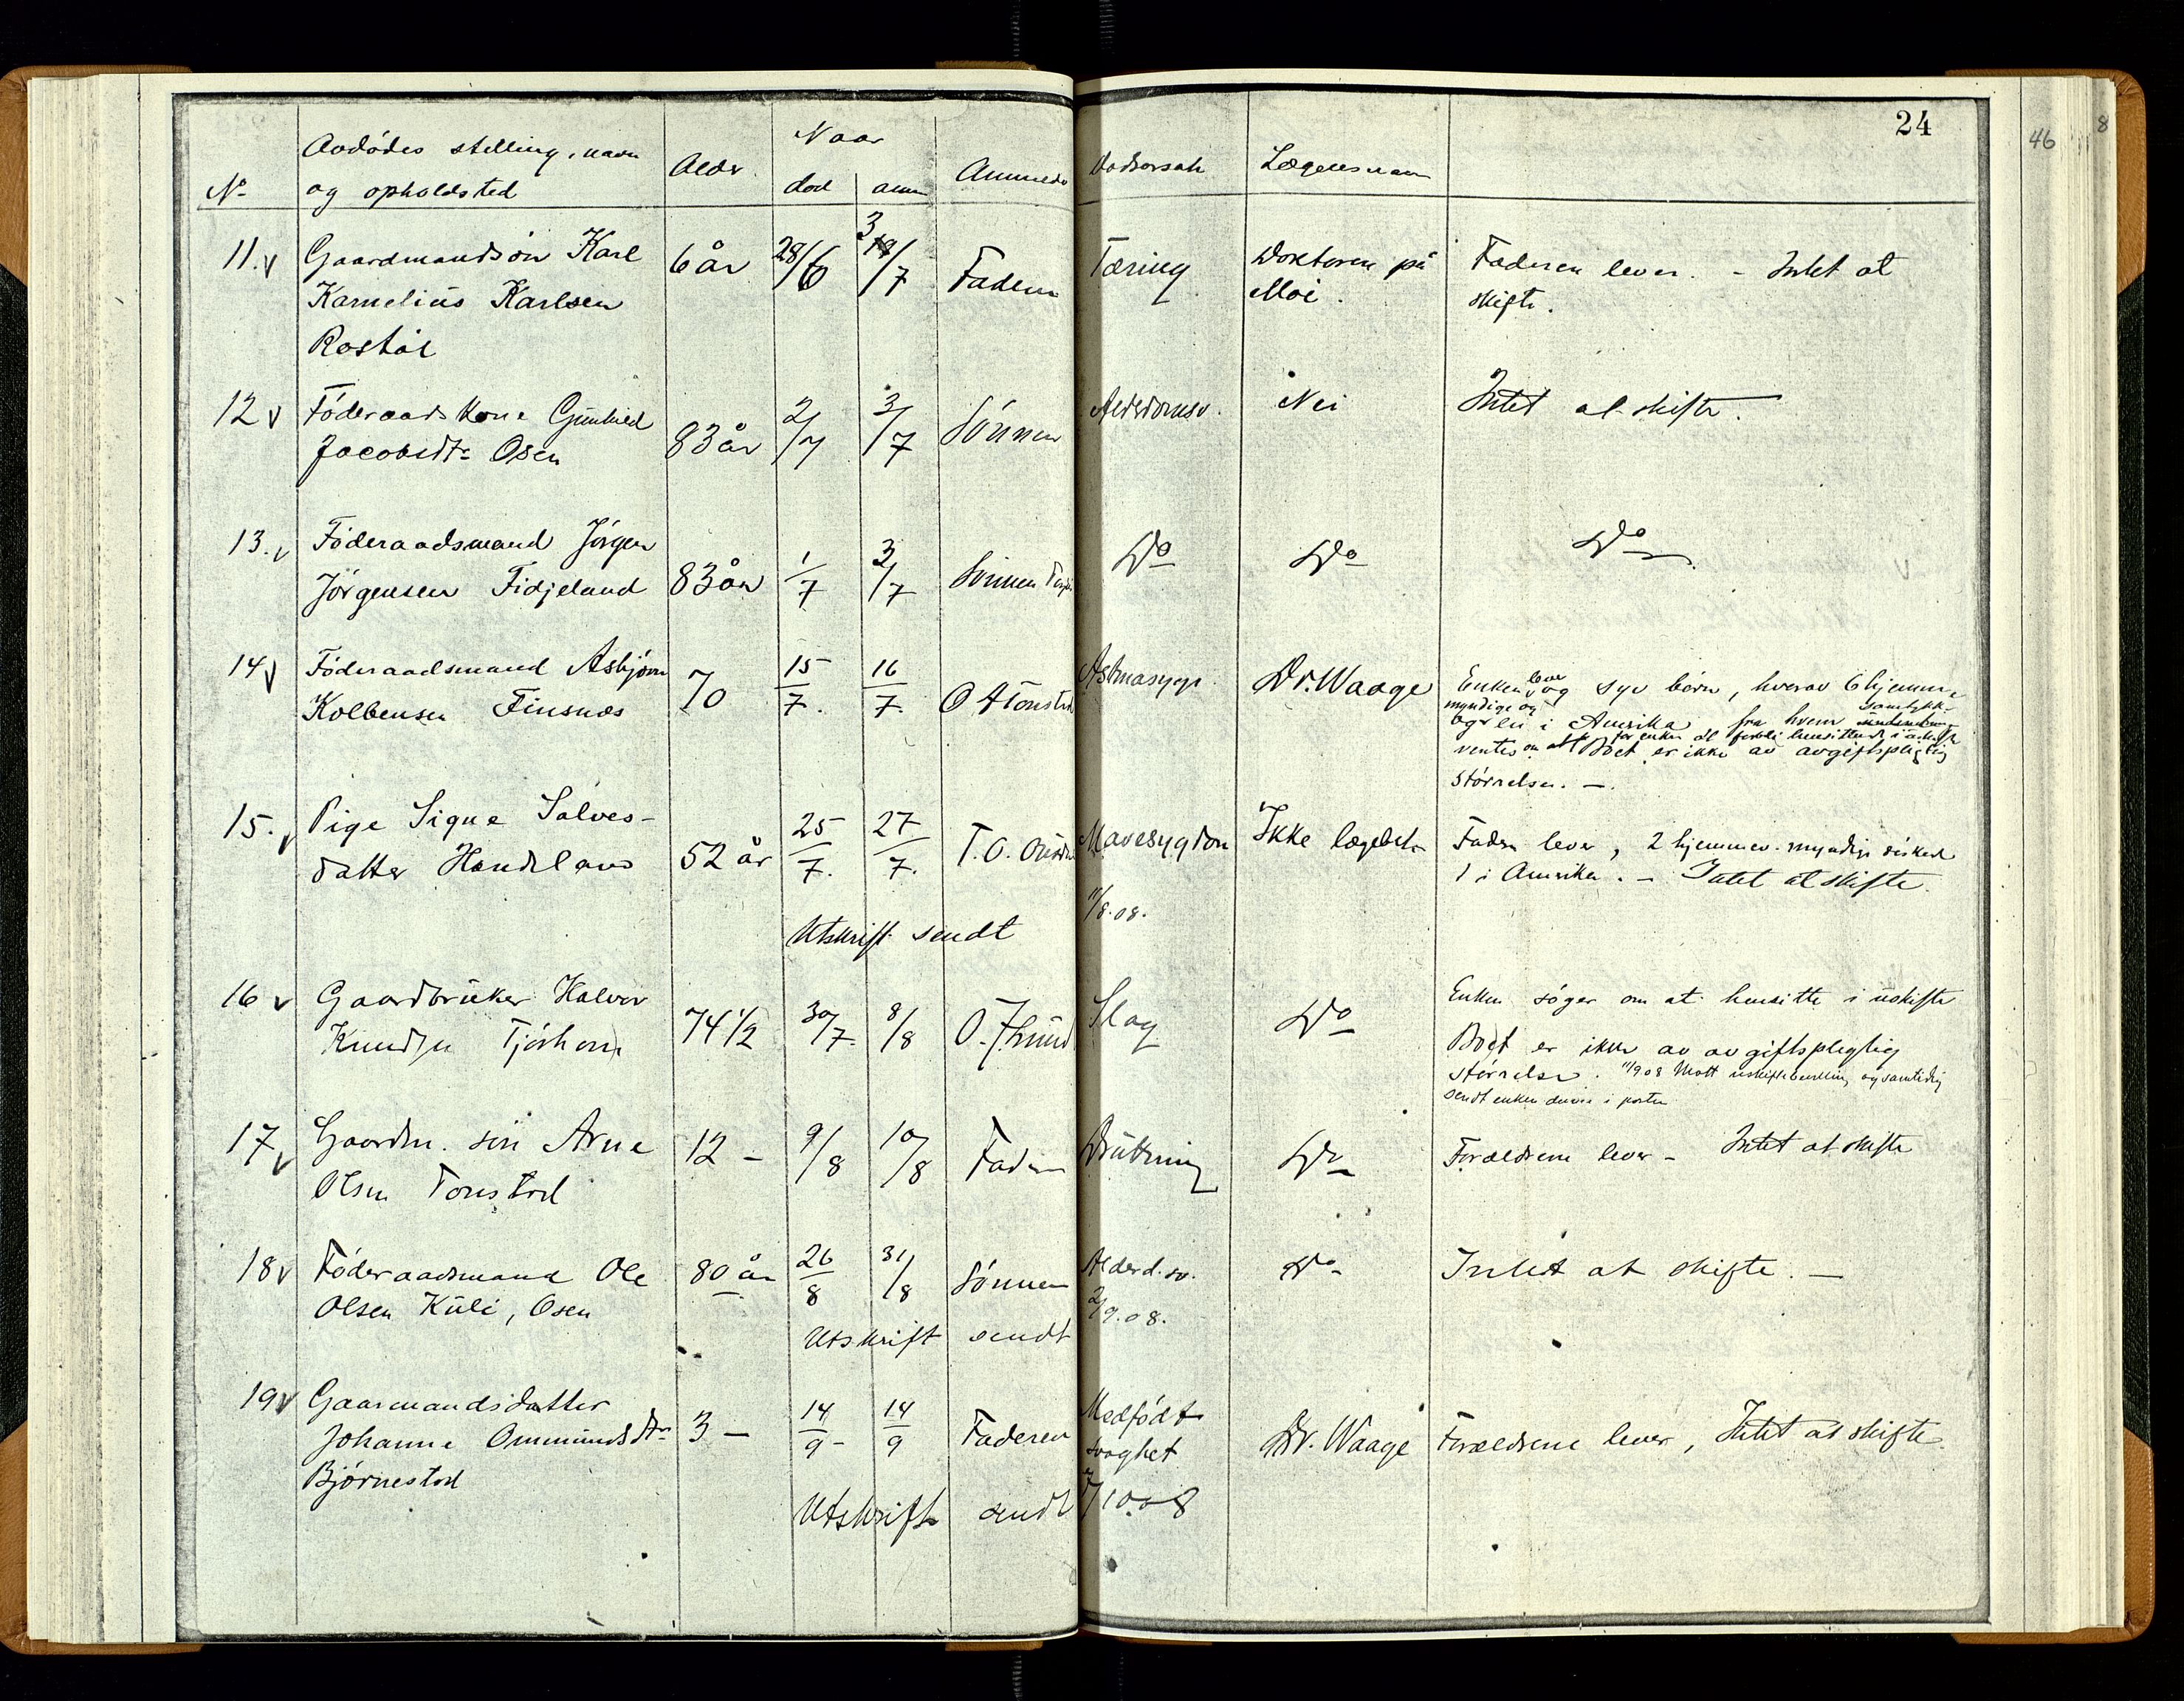 24
46
8
No
Avdödes stilling, navn
og opholdsted
Alder
Naar
död
anm
Anmelder
Dødsorsak
Lægens navn
11. Gaardmandsön Karl
Karnelius Karlsen
Rostöl
6 år 28/6 3/7 Faderen
Tæring
Doktoren på
Moi.
Faderen lever. - Intet at
skifte.
12 Föderaadskone Gunhild
Jacobsdtr Osen
83 år 2/7 3/7 Sönnen
Alderdomsv. Nei Intet at skifte.
13. Föderaadsmand Jörgen
Jörgensen Fidjeland
83 år 1/7 3/7 Sönnen
Do Do Do
14 Föderaadsmand Asbjörn
Kolbensen Finsnæs
70 15/7. 16/7. O A Tonstad
Astmasyge Dr. Waage
Enken lever og syv børn, hvorav 6 hjemme
myndige og en i Amerika, fra hvem samtykk-
ventes om at Boet er ikke av avgiftspligtig
störrelse. -
15. Pige Signe Salves-
datter Handeland
52 år 25/7. 27/7. T. O.
Mavesygdom Ikke lægebeh
Faderen lever, 2 hjemmev. myndige søsken
1 i Amerika. - Intet at skifte.
Utskrift sendt 11/8.08.
16 Gaardbruker Halvor
Knudsen Tjörhom
74 1/2 30/7. 8/8 O.
Slag Do
Enken söger om at hensitte i uskifte
Boet er ikke av avgiftspligtig
störrelse. 11/9 08 Mott uskiftebevilling og samtidig
sendt enken denne i posten
17 Gaardm. sön Arne
Olsen Tonstad
12 - 9/8 10/8 Faderen
Drukning Do
Forældrene lever - Intet at skifte
18 Föderaadsmand Ole
Olsen Kuli, Osen
80 år 26/8 31/8 Sönnen
Alderd. sv. Do Intet at skifte. -
Utskrift sendt 2/9.08.
19 Gaarmandsdatter
Johanne Ommundsdtr
Björnestad
3 - 14/9 - 14/9 Faderen
Medfödt
svaghet
Dr. Waage Forældrene lever, Intet at skifte.
Utskrift sendt 7/10.08